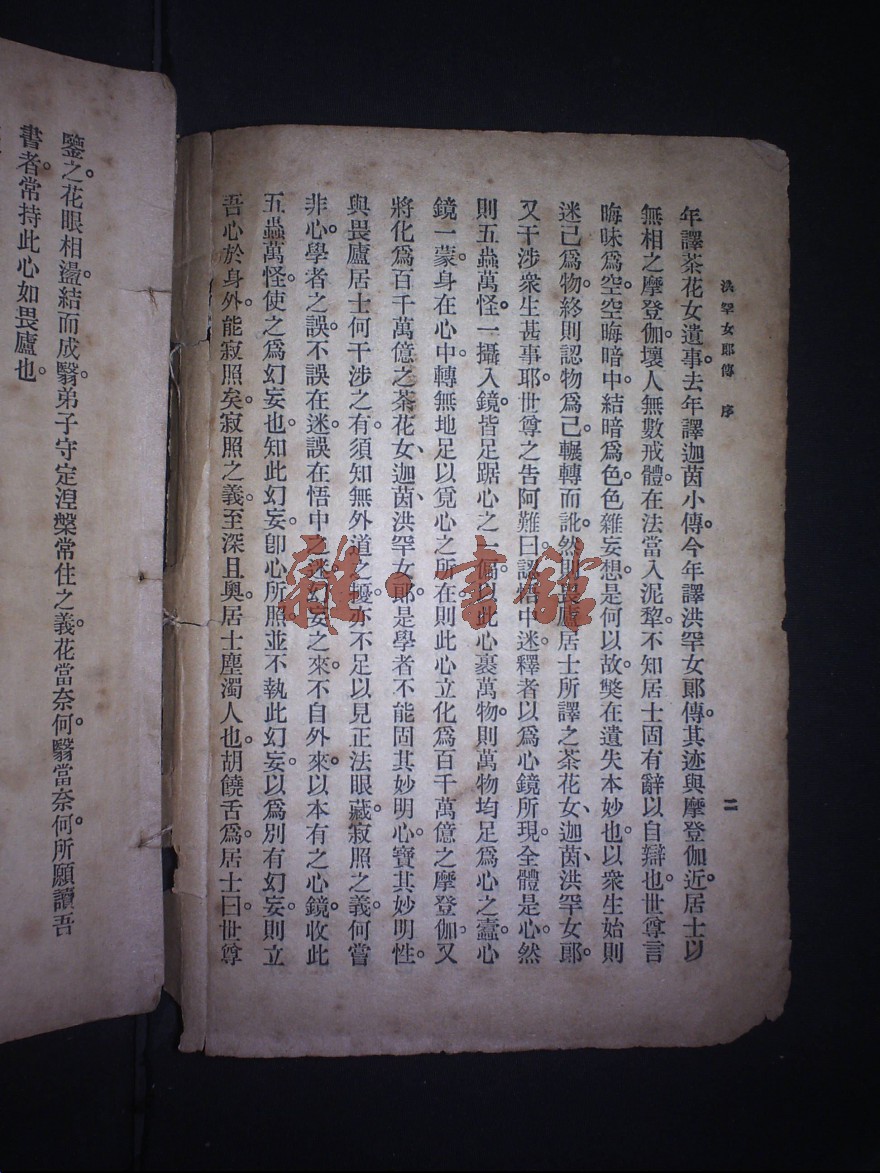 洪罕女郎傳　序
二
年譯茶花女遺事。去年譯迦茵小傳。今年譯洪罕女郎傳。其迹與摩登伽近。居士以
無相之摩登伽。壞人無數戒體。在法當入泥犂。不知居士固有辭以自辯也。世尊言
晦昧爲空。空晦暗中。結暗爲色。色雜妄想。是何以故。獘在遺失本妙也。以衆生始則
迷己爲物。終則認物爲己。輾轉而訛。然則畏廬居士所譯之茶花女、迦茵、洪罕女郎。
又干涉衆生甚事耶。世尊之告阿難曰。認悟中迷。釋者以爲心鏡所現。全體是心。然
則五蟲萬怪。一攝入鏡。皆足踞心之一偶。以此心裹萬物。則萬物均足爲心之蠹。心
鏡一蒙。身在心中。轉無地足以覓心之所在。則此心立化爲百千萬億之摩登伽。又
將化爲百千萬億之茶花女、迦茵、洪罕女郎。是學者不能固其妙明心。寶其妙明性。
與畏廬居士何干涉之有。須知無外道之擾。亦不足以見正法眼藏。寂照之義。何嘗
非心。學者之誤。不誤在迷。誤在悟中之迷。幻妄之來。不自外來。以本有之心鏡。收此
五蟲萬怪。使之爲幻妄也。知此幻妄。卽心所照。並不執此幻妄。以爲別有幻妄。則立
吾心於身外。能寂照矣。寂照之義。至深且奧。居士塵濁人也。胡饒舌爲。居士曰。世尊
鑒之。花眼相盪。結而成翳。弟子守定涅槃常住之義。花當奈何。翳當奈何。所願讀吾
書者。常持此心如畏廬也。
雜·書館